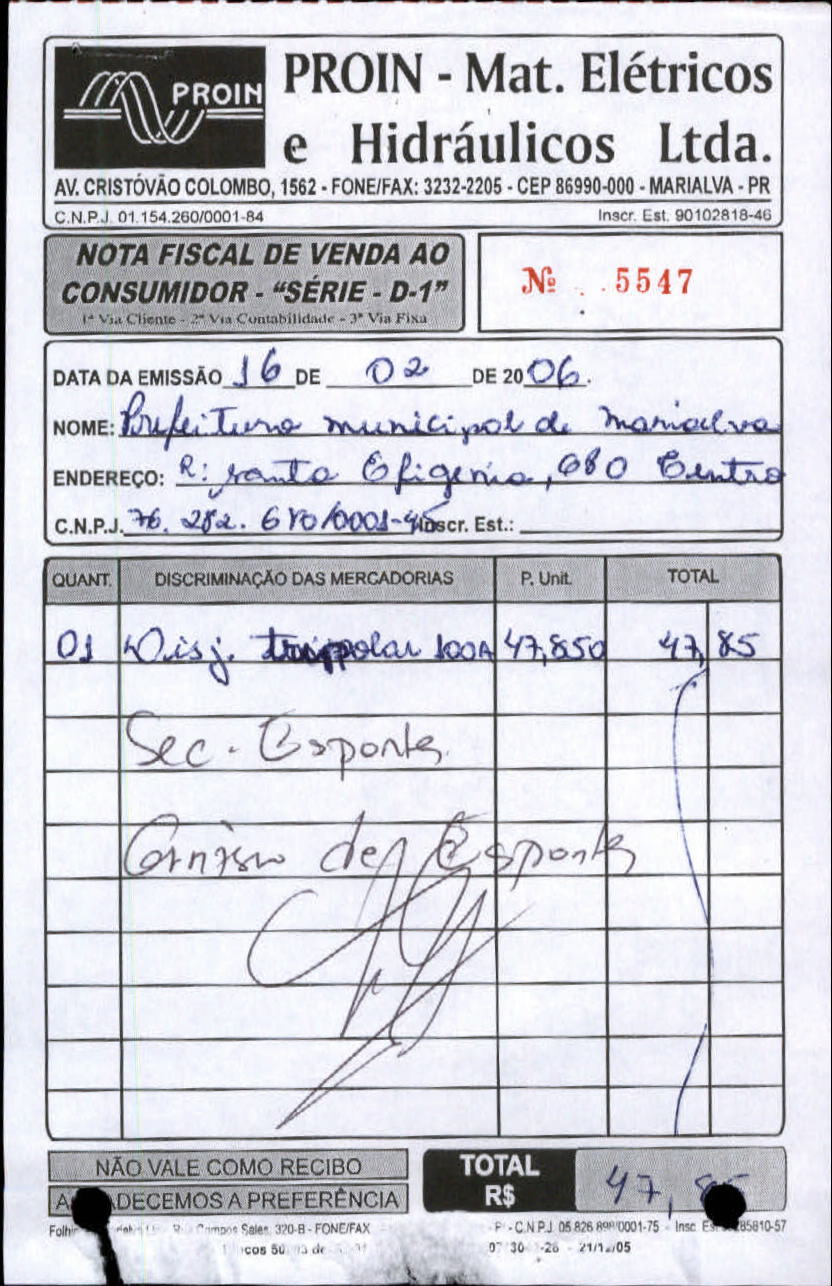 PROIN
PROIN - Mat. Elétricos
e Hidráulicos Ltda.
AV. CRISTÓVÃO COLOMBO, 1562 - FONE/FAX: 3232-2205 - CEP 86990-000 - MARIALVA - PR
C.N.P.J. 01.154.260/0001-84 Inscr. Est. 90102818-46
NOTA FISCAL DE VENDA AO
CONSUMIDOR - "SÉRIE - D-1"
1ª Via Cliente - 2ª Via Contabilidade - 3ª Via Fixa
Nº 5547
DATA DA EMISSÃO 16 DE 02 DE 2006.
NOME: Prefeitura municipal de Marialva
ENDEREÇO: R: santa Efigenia, 680 Centro
C.N.P.J. 76.282.680/0001-45 Inscr. Est.:
QUANT. DISCRIMINAÇÃO DAS MERCADORIAS P. Unit. TOTAL
01 Disj. trippolar 100A 47,850 47,85
Sec. Esporte
de Esporte
NÃO VALE COMO RECIBO
DECEMOS A PREFERÊNCIA
TOTAL
R$ 47,85
Campos Sales, 320-B - FONE/FAX - C.N.P.J. 05.826.898/0001-75 - Insc. Es 85810-57
21/12/05